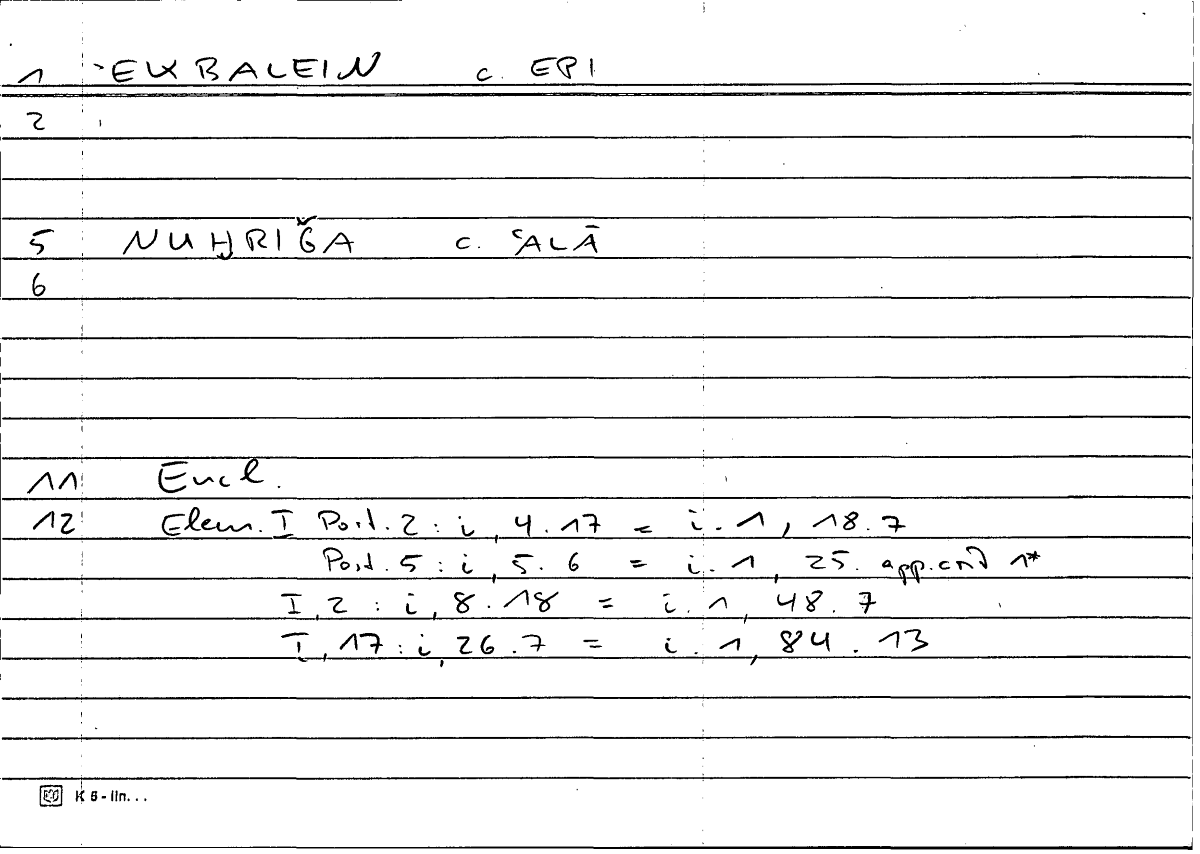 1 'EKBALEIN c. EPI
2
5 NUḪRIǦA c. ʿALĀ
6
11 Eucl.
12 Elem. I Post. 2 : i, 4.17 = i.1, 18.7
Post. 5 : i, 5.6 = i.1, 25. app.crit 1*
I, 2 : i, 8.18 = i.1, 48.7
I, 17 : i, 26.7 = i.1, 84.13
K 6 - lin...